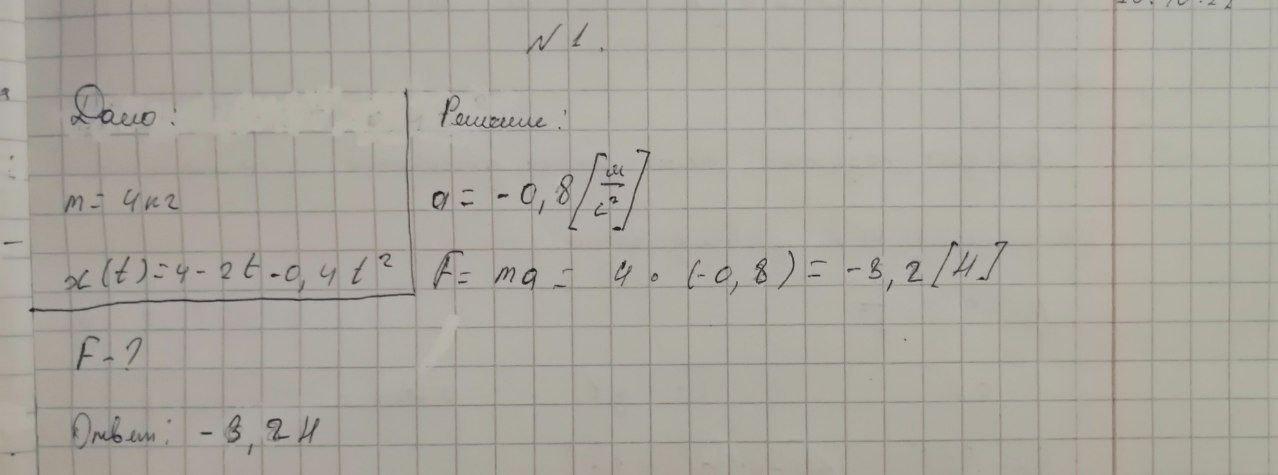 N 1.
Дано:
m = 4 кг
x(t) = 4 - 2t - 0,4t²
F - ?
Решение:
a = -0,8 [м/с²]
F = ma = 4 · (-0,8) = -3,2 [Н]
Ответ: -3,2 Н